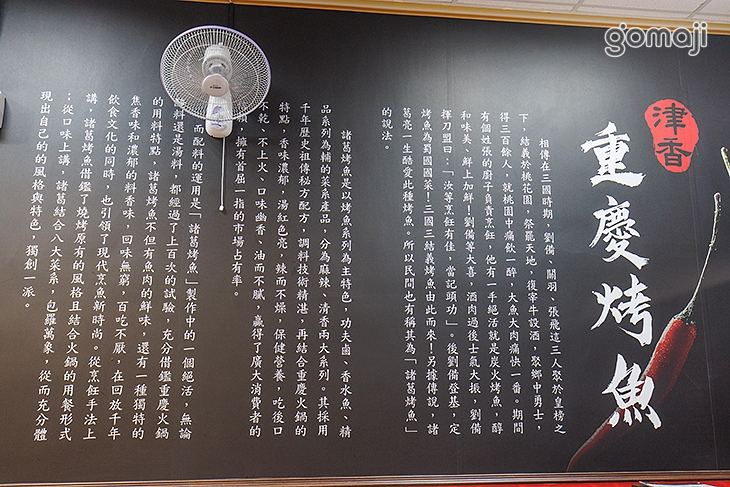 gomaji
津香
重慶烤魚
相傳在三國時期，劉備、關羽、張飛這三人聚於皇榜之
下，結義於桃花園，祭罷天地，復宰牛設酒，聚鄉中勇士，
得三百餘人，就桃園中痛飲一醉，大魚大肉痛快一番。期間
有個姓張的廚子負責烹飪，他有一手絕活就是炭火烤魚，醇
和味美、鮮上加鮮！劉備等大喜，酒肉過後士氣大振，劉備
揮刀盟曰：「汝等烹飪有佳，當記頭功」。後劉備登基，定
烤魚為蜀國國菜！三國三結義烤魚由此而來！另據傳說，諸
葛亮一生酷愛此種烤魚。所以民間也有稱其為「諸葛烤魚」
的說法。
諸葛烤魚是以烤魚系列為主特色，功夫鹵、香水魚、精
品系列為輔的菜系產品，分為麻辣、清香兩大系列。其採用
千年歷史祖傳秘方配方，調料技術精湛，再結合重慶火鍋的
特點，香味濃郁，湯紅色亮，辣而不燥，保健營養，吃後口
不乾、不上火、口味幽香、油而不膩，贏得了廣大消費者的
，擁有首屈一指的市場占有率。
而配料的運用是「諸葛烤魚」製作中的一個絕活，無論
料還是湯料，都經過了上百次的試驗，充分借鑑重慶火鍋
的用料特點，諸葛烤魚不但有魚肉的鮮味，還有一種獨特的
焦香味和濃郁的料香味，回味無窮，百吃不厭，在回放千年
飲食文化的同時，也引領了現代烹魚新時尚。從烹飪手法上
講，諸葛烤魚借鑑了燒烤原有的風格且結合火鍋的用餐形式
；從口味上講，諸葛結合八大菜系，包羅萬象，從而充分體
現出自己的的風格與特色，獨創一派。